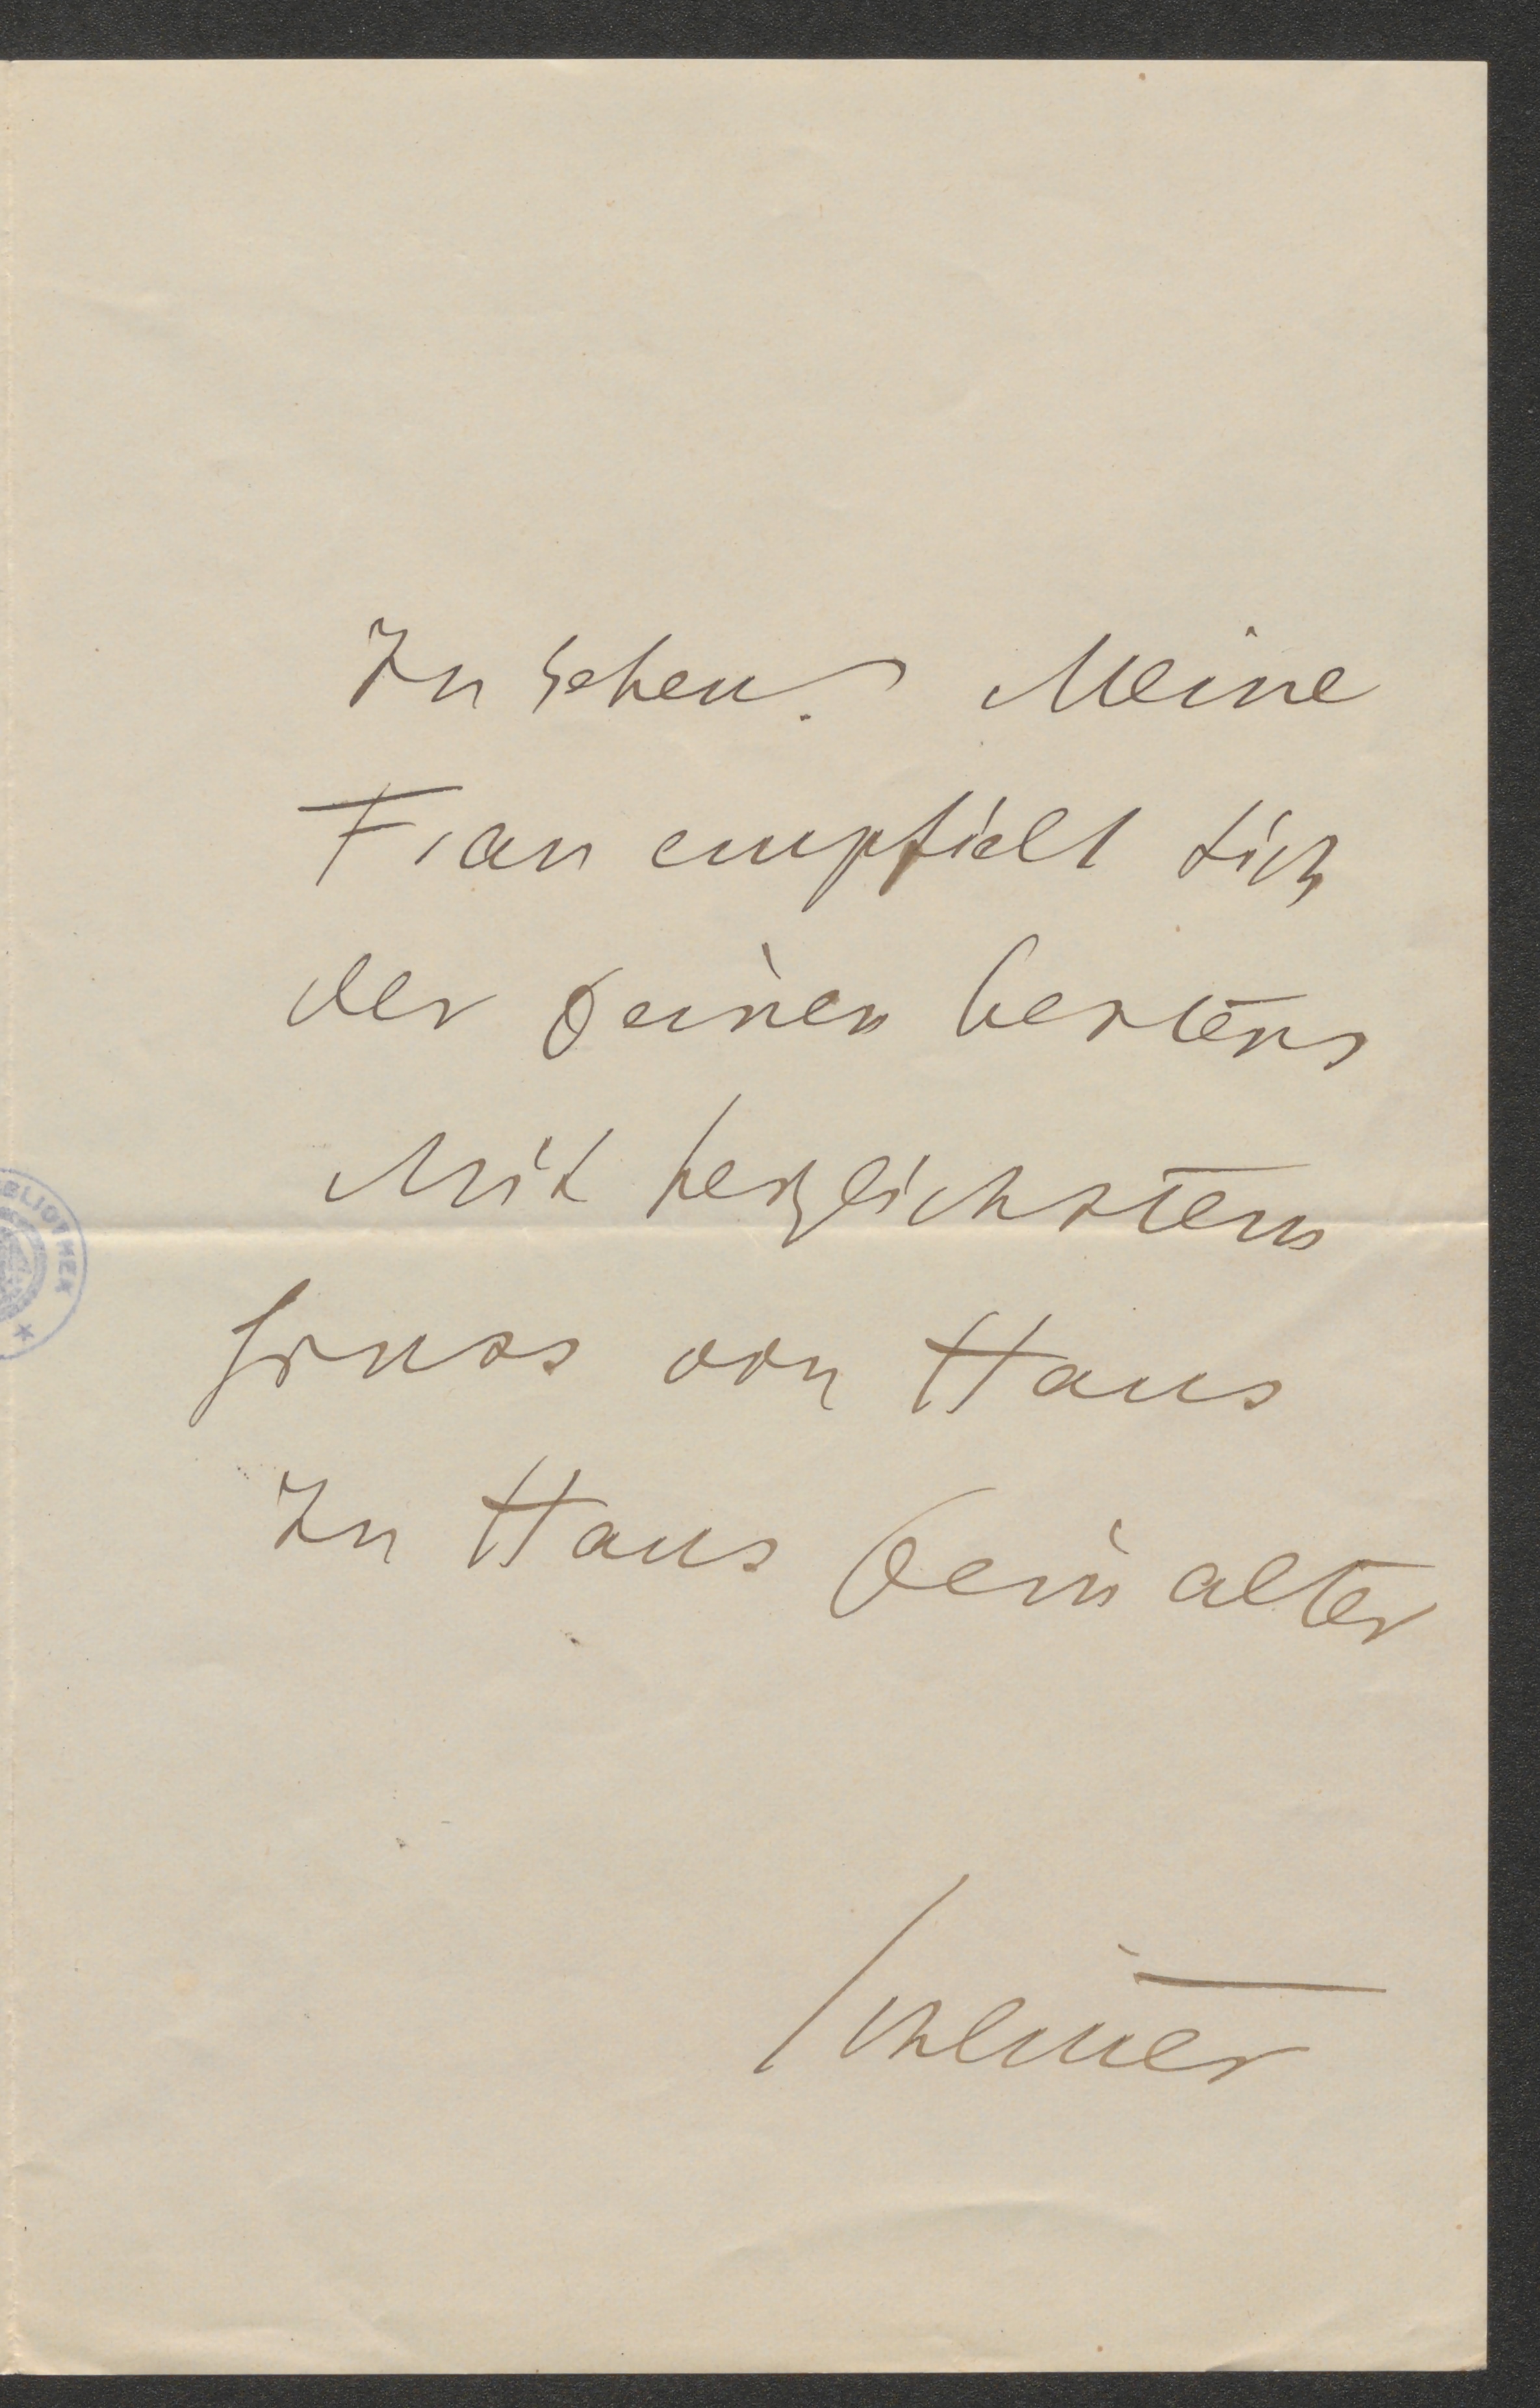 zu sehen. Meine
Frau empfielt sich
der Deinen bestens
Mit herzlichstem
Gruss von Haus
zu Haus Dein alter
BLIOTHEK